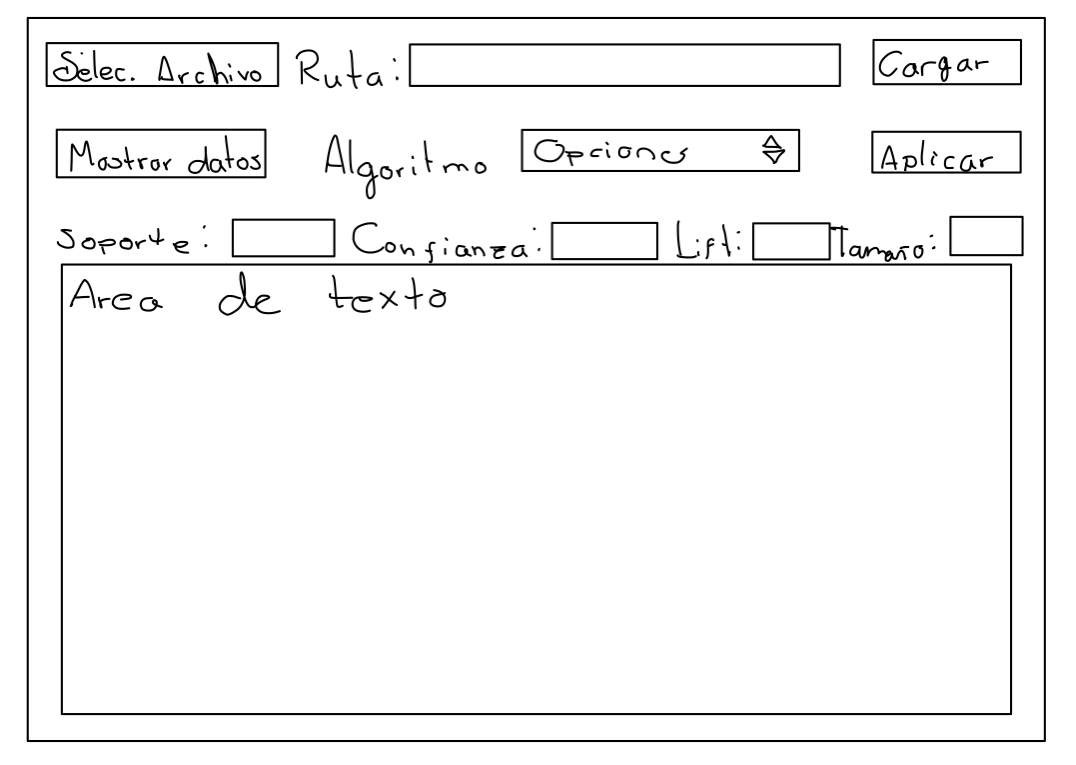 Selec. Archivo Ruta: Cargar
Mostrar datos Algoritmo Opciones Aplicar
Soporte: Confianza: Lift: Tamaño:
Area de texto